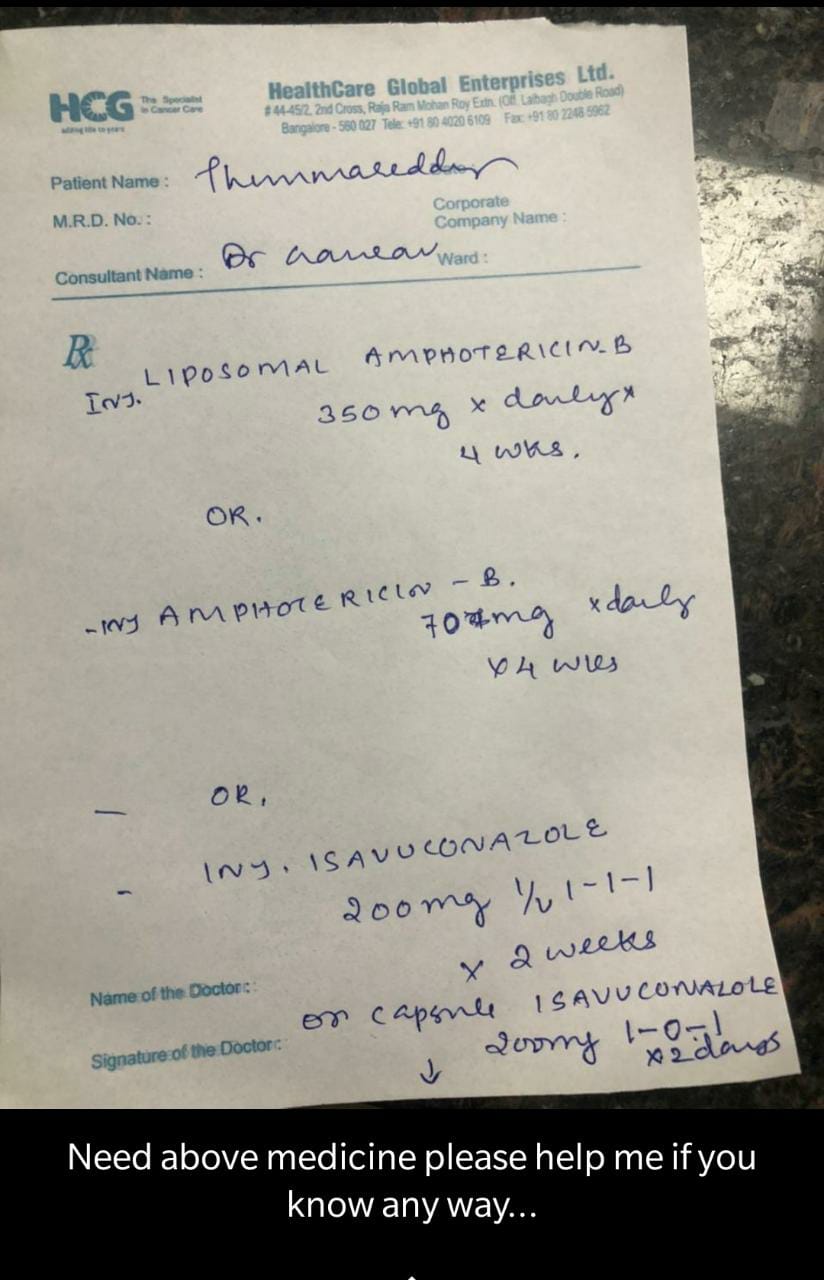 HCG The Specialist in Cancer Care
adding life to years
HealthCare Global Enterprises Ltd.
# 44-45/2, 2nd Cross, Raja Ram Mohan Roy Extn. (Off. Lalbagh Double Road)
Bangalore - 560 027 Tele: +91 80 4020 6109 Fax: +91 80 2248 5962
Patient Name : Thimmareddy
M.R.D. No. :
Corporate
Company Name :
Consultant Name : Dr
Ward :
Rx
Inj. LIPOSOMAL AMPHOTERICIN-B
350 mg x daily x
4 wks.
OR.
- INJ AMPHOTERICIN - B.
70 mg x daily
x 4 wks
- OR,
- INJ. ISAVUCONAZOLE
200 mg 1/v 1-1-1
x 2 weeks
Name of the Doctor :
or capsule ISAVUCONAZOLE
Signature of the Doctor :
200mg 1-0-1
x 2 days
↓
Need above medicine please help me if you
know any way...